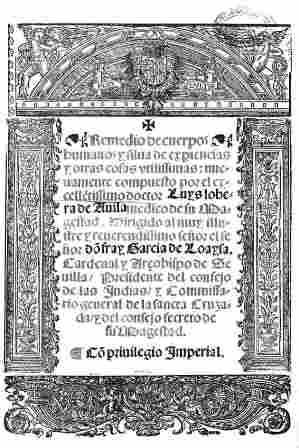 ✠
Remedio de cuerpos
humanos y silua de expiencias
y otras cosas vtilissimas: nue-
uamente compuesto por el ex
cellẽtissimo doctor Luys lobe
ra de Auila medico de su Ma-
gestad. Dirigido al muy illu-
stre y reuerendissimo señor el se
ñor dõ fray Garcia de Loaysa.
Cardenal y Arçobispo de Se
uilla/ Presidente del consejo
de las Indias/ y Commissa-
rio general de la sancta Cruza
da/ y del consejo secreto de
su Magestad.
¶ Cõ priuilegio Imperial.